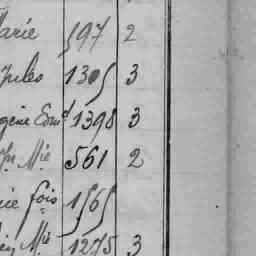 arie 597 2
Jules 1305 3
gène Edmd 1398 3
Jh Mie 561 2
ie fois 1565
Mie 1275 3